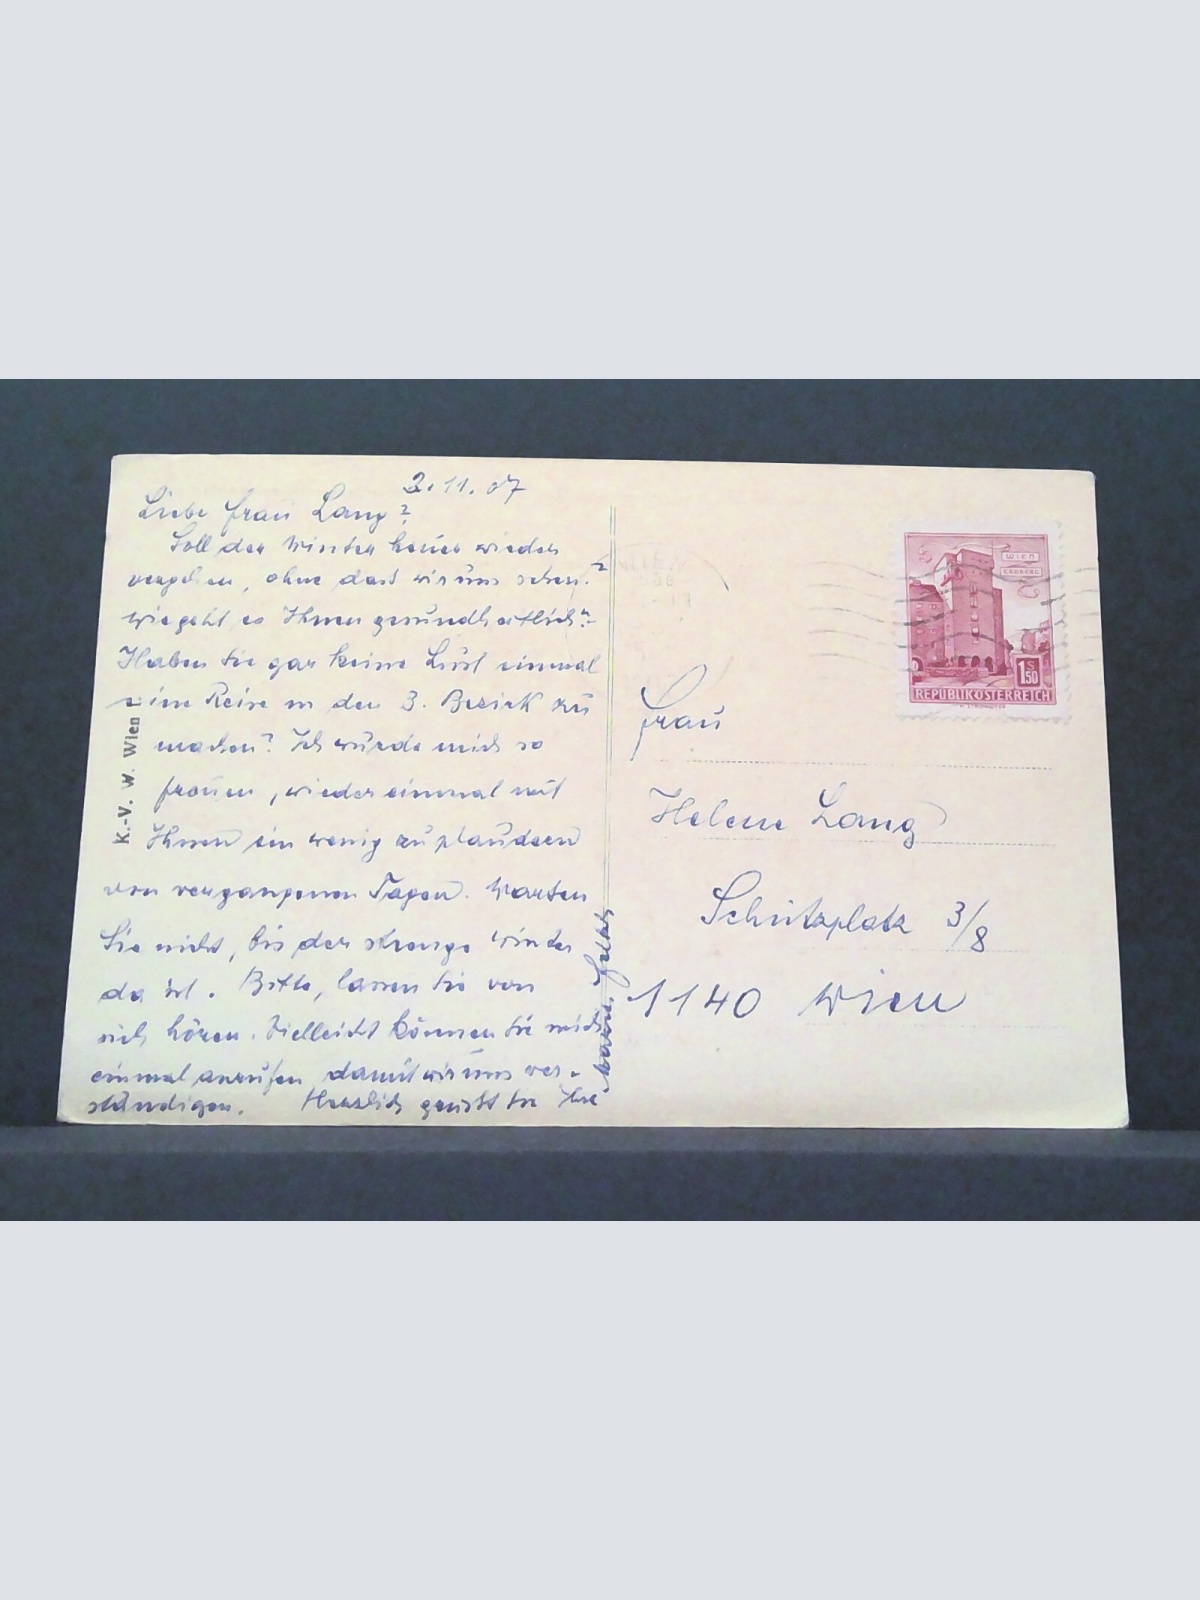 2. 11. 67
Liebe Frau Lang!
Soll der Winter heuer wieder
vergehen, ohne dass wir uns sehen?
wie geht es Ihnen gesundheitlich?
Haben Sie gar keine Lust einmal
eine Reise in den 3. Bezirk zu
machen? Ich würde mich so
freuen, wieder einmal mit
Ihnen ein wenig zu plaudern
von vergangenen Tagen. Warten
Sie nicht, bis der strenge Winter
da ist. Bitte, lassen Sie von
sich hören. Vielleicht können Sie mich
einmal anrufen damit wir uns ver-
ständigen. Herzlich grüsst Sie Ihre
K.-V. W. Wien
WIEN
WIEN
ERDBERG
1 S 50
REPUBLIK ÖSTERREICH
Frau
Helene Lang
Schützplatz 3/8
1140 Wien